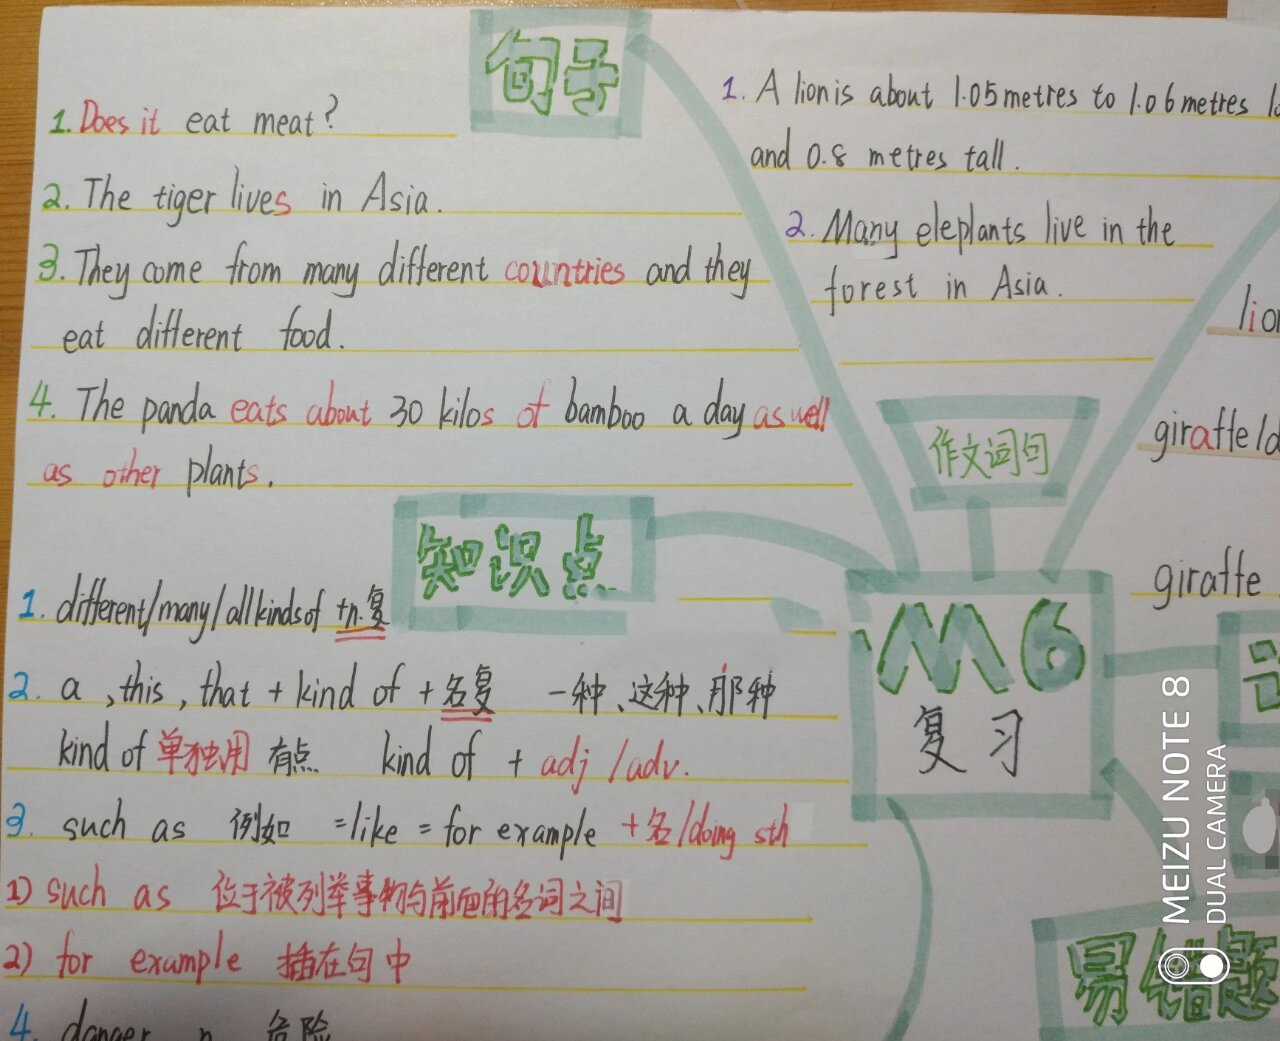 句子
1. Does it eat meat?
2. The tiger lives in Asia.
3. They come from many different countries and they
eat different food.
4. The panda eats about 30 kilos of bamboo a day as well
as other plants.
1. A lion is about 1.05 metres to 1.06 metres
and 0.8 metres tall.
2. Many eleplants live in the
forest in Asia.
作文词句
lion
giraffe
giraffe
M6
复习
知识点
1. different/many/all kinds of +n.复
2. a ,this, that + kind of + 名复 一种、这种、那种
kind of 单独用 有点 kind of + adj /adv.
3. such as 例如 =like = for example +名/doing sth
1) such as 位于被列举事物与前面的名词之间
2) for example 插在句中
4. danger n 危险
易错题
MEIZU NOTE 8
DUAL CAMERA